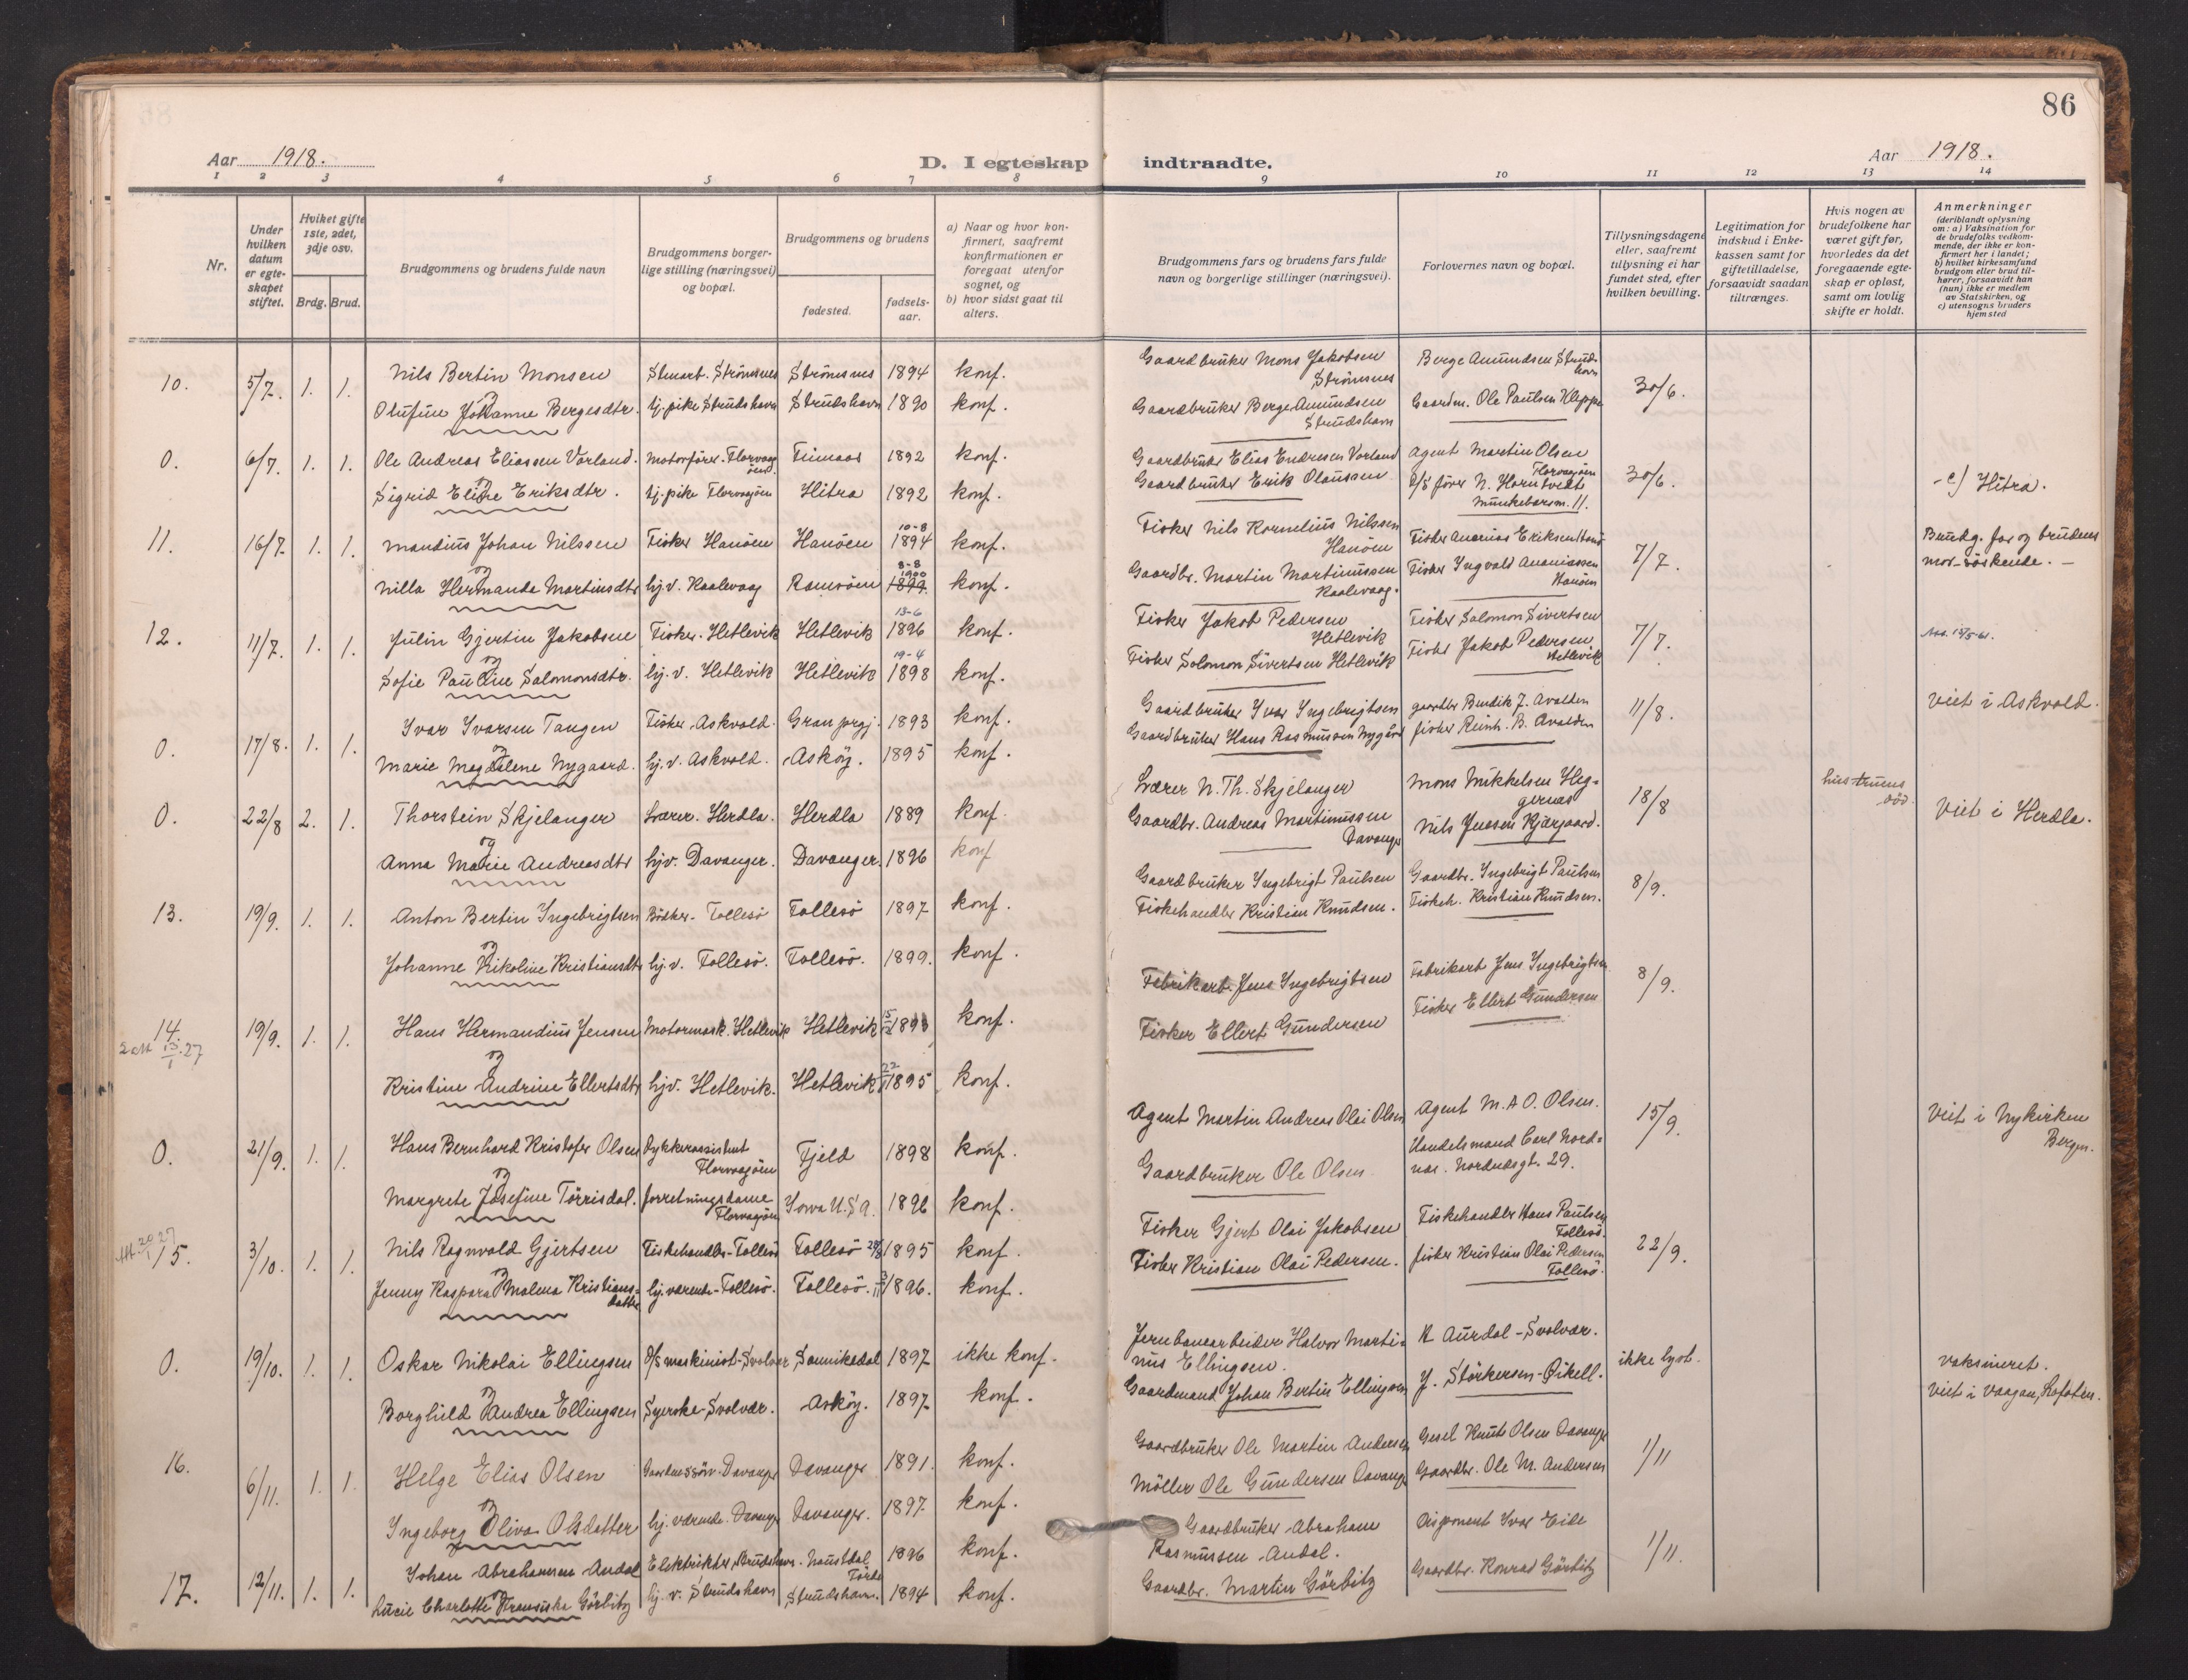 86
Aar 1918.
D. I egteskap indtraadte.
Aar 1918.
1 2 3 4 5 6 7 8 9 10 11 12 13 14
Nr.
Under hvilken datum er egteskapet stiftet.
Hviket gifte 1ste, 2det, 3dje osv.
Brdg. Brud.
Brudgommens og brudens fulde navn
Brudgommens borgerlige stilling (næringsvei) og bopæl.
Brudgommens og brudens
fødested.
fødselsaar.
a) Naar og hvor konfirmert, saafremt konfirmationen er foregaat utenfor sognet, og
b) hvor sidst gaat til alters.
Brudgommens fars og brudens fars fulde navn og borgerlige stillinger (næringsvei).
Forlovernes navn og bopæl.
Tillysningsdagene eller, saafremt tillysning ei har fundet sted, efter hvilken bevilling.
Legitimation for indskud i Enkekassen samt for giftetilladelse, forsaavidt saadan tiltrænges.
Hvis nogen av brudefolkene har været gift før, hvorledes da det foregaaende egteskap er opløst, samt om lovlig skifte er holdt.
Anmerkninger (deriblandt oplysning om: a) Vaksination for de brudefolks vedkommende, der ikke er konfirmert her i landet; b) hvilket kirkesamfund brudgom eller brud tilhører, forsaavidt han (hun) ikke er medlem av Statskirken, og c) utensogns bruders hjemsted
10. 5/7. 1. 1. Nils Bertin Monsen Strømsnes Strømsnes 1894 konf. Gaardbruker Mons Jakobsen Strømsnes Berge Amundsen Strudshavn 30/6.
og
Olufine Johanne Bergesdtr. hj. pike Strudshavn Strudshavn 1890 konf. Gaardbruker Berge Amundsen Strudshavn Gaardm. Ole Paulsen Kleppe
0. 6/7. 1. 1. Ole Andreas Eliassen Vorland. Motorfører. Florvaagøen 1892 konf. Gaardbruker Elias Endresen Vorland Agent Martin Olsen Florvagøen 30/6. c) Hitra.
og
Sigrid Eline Eriksdtr. hj. pike Florvagøen Hitra 1892 konf. Gaardbruker Erik Olaussen D/S fører N. Horntvedt Munkebotsm. 11.
11. 16/7. 1. 1. Mandius Johan Nilssen Fisker Hanøen Hanøen 10-8 1894 konf. Fisker Nils Kornelius Nilssen Hanøen Fisker Ananias Eriksen 7/7. Brudg. far og brudens mor söskende.
og
Nilla Hermanda Martinsdtr hj. v. Kaalevaag Ramsöen 8-8 1900 1899. konf. Gaardbr. Martin Martinussen Kaalevaag. Fisker Ingvald Ananiassen Hanöen
12. 11/7. 1. 1. Julin Gjertin Jakobsen Fisker. Hetlevik Hetlevik 13-6 1896 konf. Fisker Jakob Pedersen Hetlevik Fisker Salomon Sivertsen 7/7.
og
Sofie Pauline Salomonsdtr. hj. v. Hetlevik Hetlevik 19-4 1898 konf. Fisker Solomon Sivertsen Hetlevik Fisker Jakob Pedersen Hetlevik
0. 17/8. 1. 1. Ivar Ivarsen Tangen Fisker Askvold. Gran prgj. 1893 konf. Gaardbruker Ivar Ingebrigtsen gaardbr Bendik J. Avalden 11/8. Viet i Askvold.
og
Marie Magdalene Nygaard. hj. v. Askvold. Asköy. 1895 konf. Gaardbruker Hans Rasmussen Nygård fisker Reinh. B. Avalden
0. 22/8 2. 1. Thorstein Skjelanger Lærer. Herdla. Herdla 1889 konf. Lærer N. Th. Skjelanger Mons Mikkelsen Heggernes 18/8 hustruens död. Viet i Herdla.
og
Anna Marie Andreasdtr hjv. Davanger. Davanger. 1896 konf Gaardbr. Andreas Martinussen Davanger Nils Jensen Kjærgaard.
13. 19/9. 1. 1. Anton Bertin Ingebrigtsen Bödker. Follesö Follesö 1897 konf. Gaardbruker Ingebrigt Paulsen Gaardbr. Ingebrigt Paulsen 8/9.
og
Johanne Nikoline Kristiansdtr hj. v. Follesö. Follesö. 1899. konf. Fiskehandler Kristian Knudsen. Fiskeh. Kristian Knudsen.
14. 19/9. 1. 1. Hans Hermandius Jensen Motormask. Hetlevik Hetlevik 1893 konf. Fabrikarb. Jens Ingebrigtsen Fabrikarb Jens Ingebrigtsen 8/9.
og
Kristine Andrine Ellertsdtr hjv. Hetlevik. Hetlevik 1895 konf. Fisker Ellert Gundersen Fisker Ellert Gundersen
0. 21/9. 1. 1. Hans Bernhard Kristofer Olsen Dykkerassistent Florvagøen Fjeld 1898 konf. Agent Martin Andreas Olai Olsen Agent M. A. O. Olsen. 15/9. Viet i Nykirken Bergen.
og
Margrete Josefine Törrisdal. forretningsdame Florvagøen Iowa U.S.A. 1896 konf. Gaardbruker Ole Olsen Handelsmand Carl Nordnes. Nordnesgt. 29.
15. 3/10. 1. 1. Nils Ragnvald Gjertsen Fiskehandler-Follesö Follesö 1895 konf. Fisker Gjert Olai Jakobsen Fiskehandler Hans Paulsen Follesö. 22/9.
og
Jenny Kaspara Malena Kristiansdatter hj. værende-Follesö. Follesö. 1896. konf. Fisker Kristian Olai Pedersen. fisker Kristian Olai Pedersen Follesö.
0. 19/10. 1. 1. Oskar Nikolai Ellingsen D/S maskinist-Svolvær Sannikedal 1897 ikke konf. Jernbanearbeider Halvor Martinus Ellingsen. K Aurdal-Svolvær. ikke lyst. vaksineret.
og
Borghild Andrea Ellingsen Syerske-Svolvær. Asköy. 1897 konf. Gaardmand Johan Bertin Ellingsen J. Störkersen-Qikell. viet i Vaagan, Lofoten.
16. 6/11. 1. 1. Helge Elias Olsen Gaardmanssön-Davanger Davanger 1891. konf. Gaardbruker Ole Martin Andersen Gesel Knut Olsen Davanger 1/11
og
Ingeborg Oliva Olsdatter hj. værende. Davanger Davanger. 1897. konf. Möller Ole Gundersen Davanger Gaardbr. Ole M. Andersen
17. 12/11. 1. 1. Johan Abrahamsen Andal Elektrikter, Strudshavn. Naustdal Förde 1896 konf. Gaardbruker Abraham Rasmussen Andal. Disponent Ivar Eide 1/11.
og
Lucie Charlotte Fransiska Görbitz hj. v. Strudshavn Strudshavn. 1894 konf. Gaardbr. Martin Görbitz Gaardbr. Konrad Görbitz